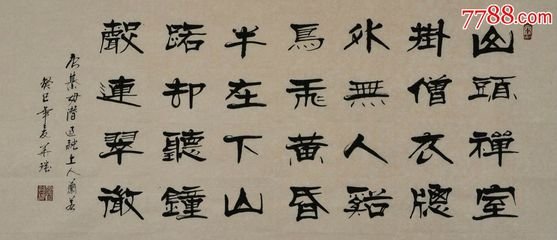 山頭禪室
掛僧衣牕
外無人谿
鳥飛黃昏
半在下山
路却聽鐘
聲連翠微
唐綦毋潛過融上人蘭若
癸巳年夏
7788.com